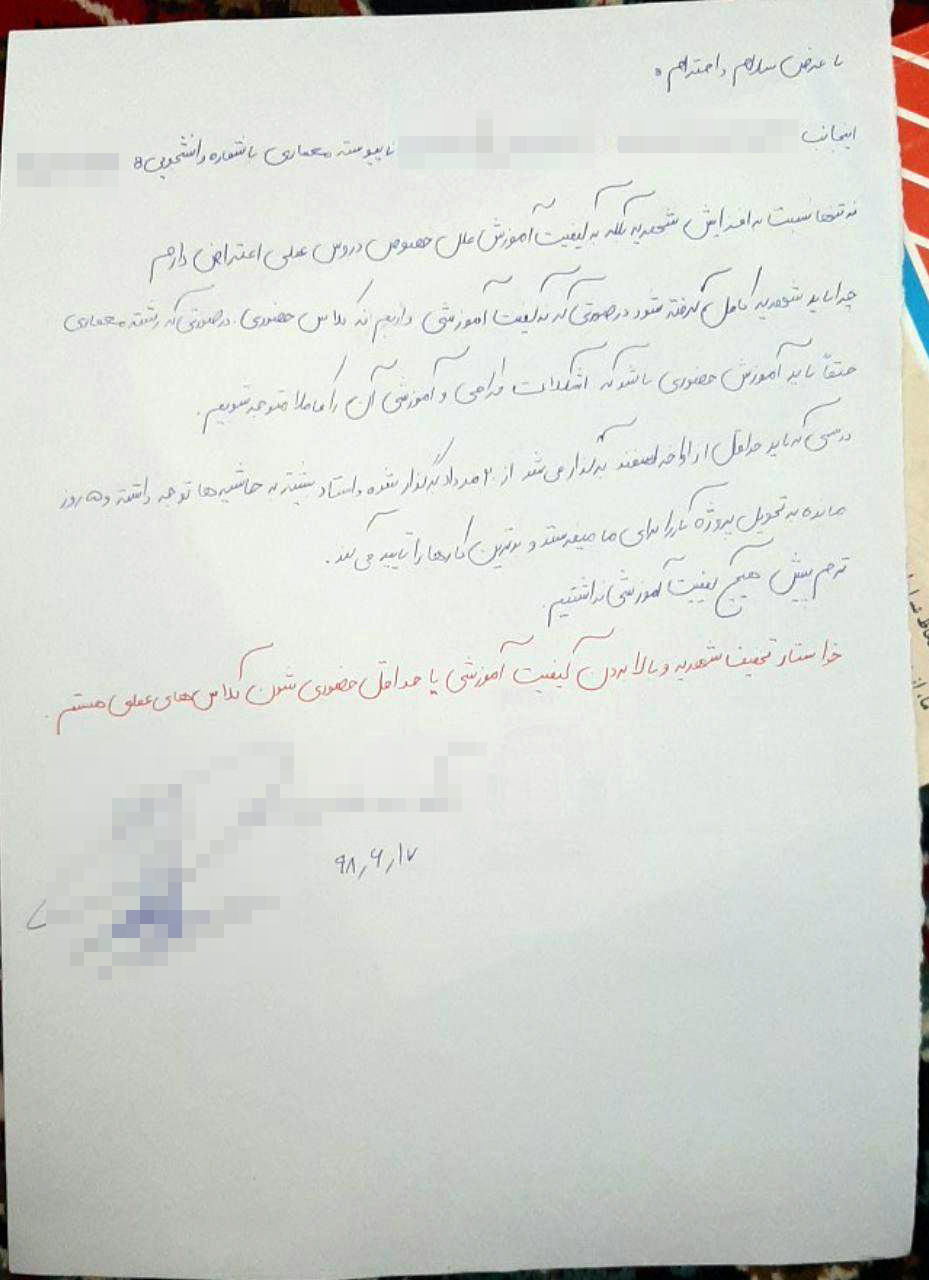 با عرض سلام و احترام ،
اینجانب ناپیوسته معماری با شماره دانشجویی ،
نه تنها نسبت به افزایش شهریه بلکه به کیفیت آموزش علی الخصوص دروس عملی اعتراض دارم
چرا باید شهریه کامل گرفته شود در صورتی که نه کیفیت آموزشی داریم نه کلاس حضوری. در صورتی که رشته معماری
حتماً باید آموزش حضوری باشد که اشکلات طراحی و آموزشی آن را کاملا متوجه شویم.
درسی که باید حداقل از اواخر اسفند برگذار می شد از ۲۰ مرداد برگذار شده و استاد بیشتر به حاشیه ها توجه داشته و ۵ روز
مانده به تحویل پروژه کار را برای ما میفرستد و بدترین کارها را تایید می کند.
ترم پیش هیچ کیفیت آموزشی نداشتیم.
خواستار تخفیف شهریه و بالا بردن کیفیت آموزشی یا حداقل حضوری شدن کلاس های عملی هستم.
۹۸٫۶٫۱۷